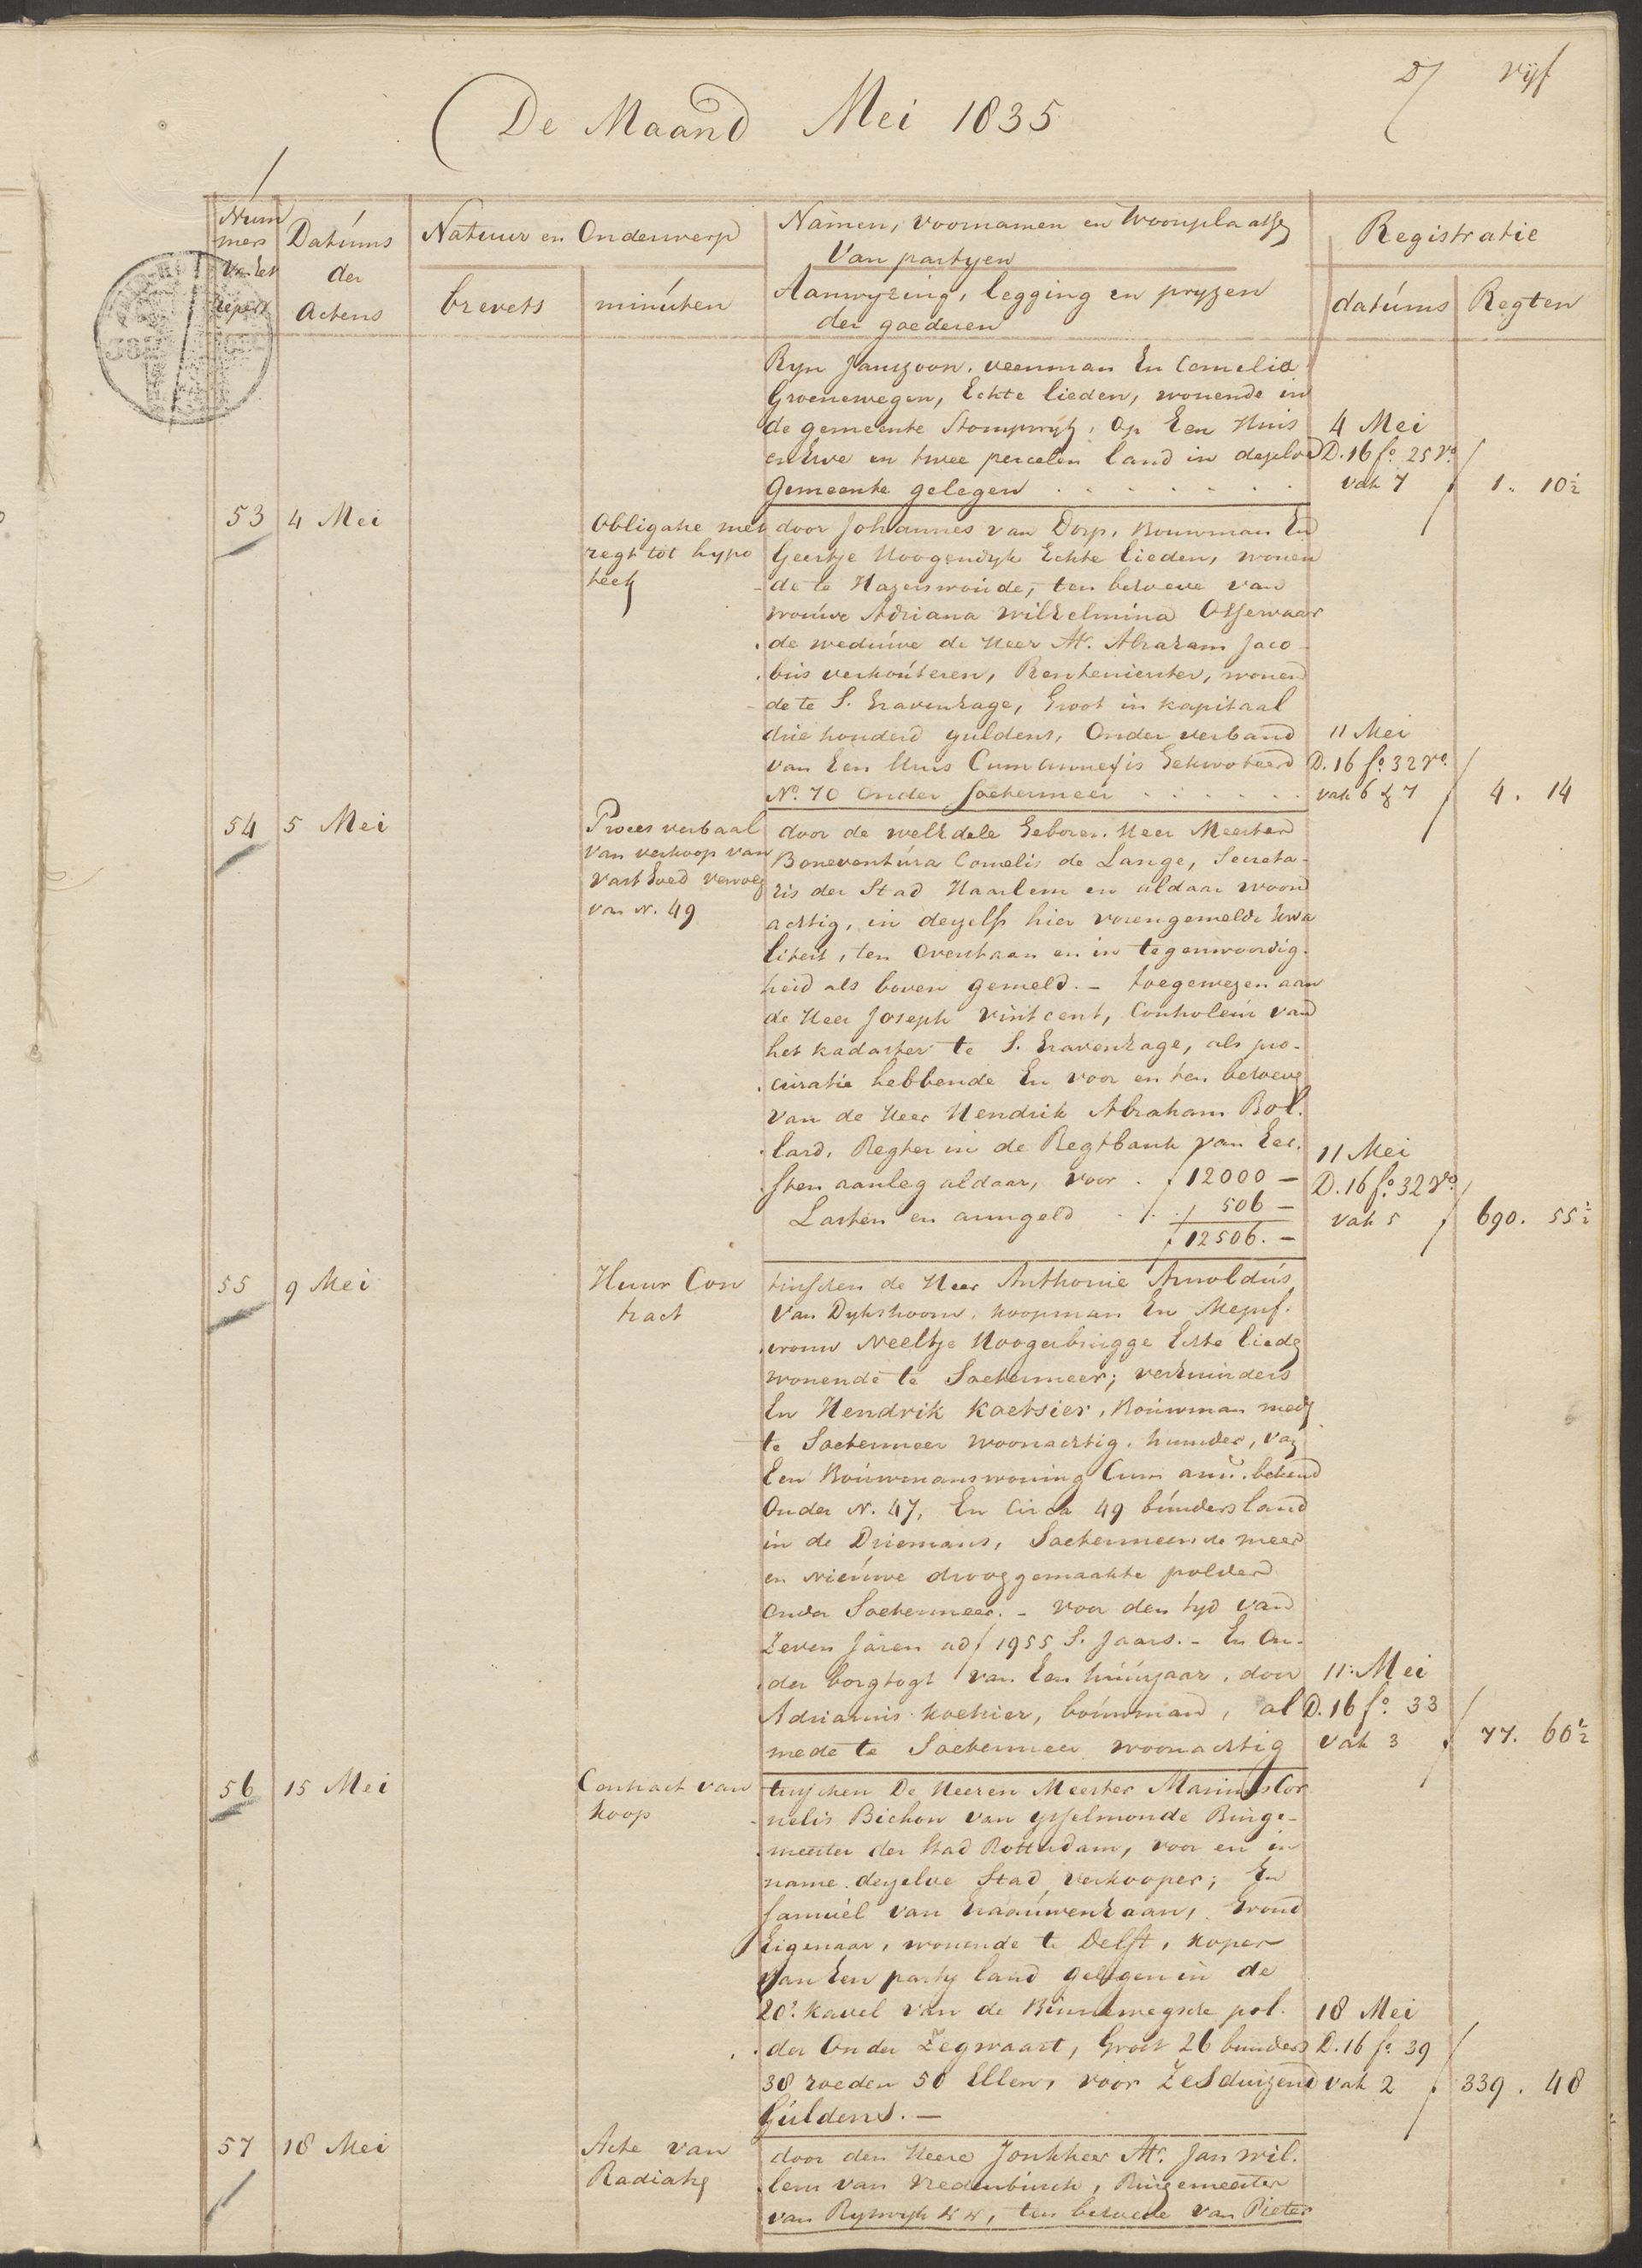 D/ vijf
De Maand Mei 1835
Num
mers
van het
repert
Datúms
der
Actens
Natuur en Onderwerp
brevets
minúten
Namen, voornamen en Woonplaatse
Van partyen
Aanwyzing, legging en pryzen
der goederen
Registratie
datúms
Regten
Ryn Janszoon, veenman En Cornelia
Groenewegen, Echte lieden, wonende in
de gemeente Stompwijk, Op Een Huis
en Erve en twee percelen land in dezelve
Gemeente gelegen . . . . . . .
4 Mei
D. 16 fo. 25 Vo.
vak 7 ƒ 1. 10½
53 4 Mei
Obligatie met
regt tot hypo
teek
door Johannes van Dorp, Bouwman En
Geertje Hoogendijk Echte lieden, wonen
de te Hazerswoúde, ten behoeve van
vrouwe Adriana Wilhelmina Ossewaar
de weduwe de Heer Mr. Abraham Jaco-
bus verhoúteren, Rentenierster, wonen
de te S. Gravenhage, Groot in kapitaal
drie honderd guldens, Onder verband
van Een Huis Cum annexis Gekwoteerd
No. 70 Onder Soetermeer . . . . . .
11 Mei
D. 16 fo. 32 vo.
vak 6 & 7 ƒ 4. 14
54 5 Mei
Proces verbaal
Van verkoop van
vast Goed vervolg
van N. 49
door de welEdele Geboren Heer Meester
Boneventúra Cornelis de Lange, Secreta-
ris der Stad Haarlem en aldaar woon
achtig, in deszelfs hier vorengemelde kwa
liteit, ten Overstaan en in tegenwoordig-
heid als boven gemeld. - toegewezen aan
de Heer Joseph Vintcent, Controleúr van
het kadaster te S. Gravenhage, als pro-
curatie hebbende En voor en ten behoeve
van de Heer Hendrik Abraham Bol-
lard, Regter in de Regtbank van Eer-
sten aanleg aldaar, voor . ƒ 12000 -
Lasten en armgeld . . ƒ 506 -
ƒ 12506. -
11 Mei
D. 16 fo. 32 Vo.
vak 5 ƒ 690. 55½
55 9 Mei
Huur Con
tract
tusschen de Heer Anthonie Arnoldús
Van Dykshoorn, koopman En Mejuf-
vrouw Neeltje Hoogerbrúgge Echte liede
wonende te Soetermeer; verhuurders
En Hendrik Koetsier, Boúwman mede
te Soetermeer woonachtig, huurder, van
Een Boúwmanswoning Cum ann. bekend
Onder N. 47, En Circa 49 búnders land
in de Driemans, Soetermeersche meer
en Nieúwe drooggemaakte polder
Onder Soetermeer. - voor den tyd van
Zeven Jaren ad ƒ 1955 S. Jaars. - En On-
der borgtogt van Een húúrjaar, door
Adrianus Koetsier, boúwman, al
mede te Soetermeer woonachtig
11 Mei
D. 16 fo. 33
vak 3 ƒ 77. 60½
56 15 Mei
Contract van
Koop
tusschen De Heeren Meester Marinus Cor
nelis Bichon van ysselmonde Burge-
meester der Stad Rotterdam, voor en in
name dezelve Stad, verkooper; En
Samúel van Graaúwenhaan, Grond
Eigenaar, wonende te Delft, koper
Van Een party land gelegen in de
20e. Kavel van de Binnewegsche pol-
der Onder Zegwaart, Groot 26 bunders
38 roeden 50 Ellen, voor Zesduizend
Gúldens. -
18 Mei
D. 16 fo. 39
vak 2 ƒ 339. 48
57 18 Mei
Acte van
Radiatie
door den Heere Jonkheer Mr. Jan Wil-
lem van Vredenbúrch, Burgemeester
van Ryswyk &&, ten behoeve van Pieter